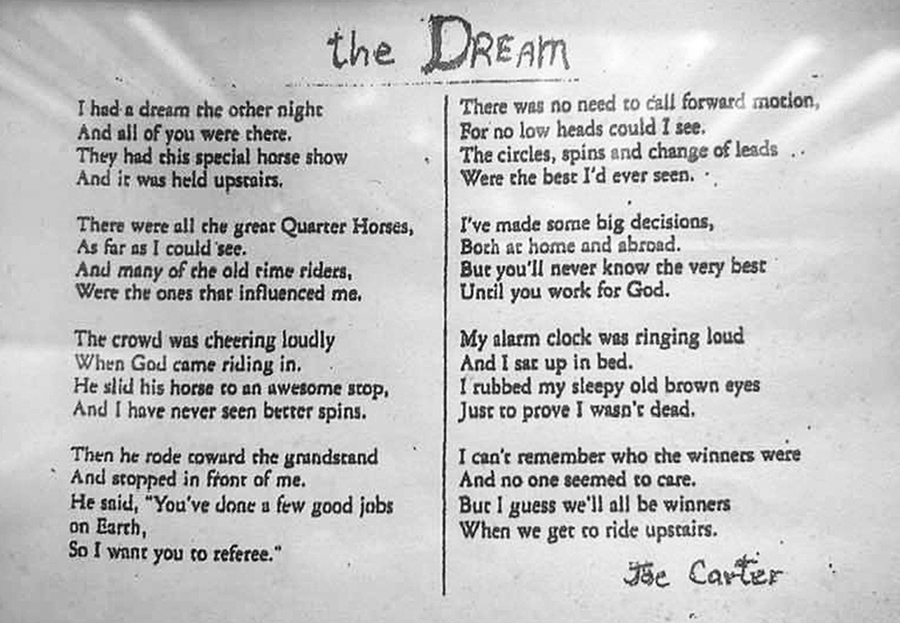 the DREAM
I had a dream the other night
And all of you were there.
They had this special horse show
And it was held upstairs.
There were all the great Quarter Horses,
As far as I could see.
And many of the old time riders,
Were the ones that influenced me.
The crowd was cheering loudly
When God came riding in.
He slid his horse to an awesome stop,
And I have never seen better spins.
Then he rode toward the grandstand
And stopped in front of me.
He said, "You've done a few good jobs
on Earth,
So I want you to referee."
There was no need to call forward motion,
For no low heads could I see.
The circles, spins and change of leads
Were the best I'd ever seen.
I've made some big decisions,
Both at home and abroad.
But you'll never know the very best
Until you work for God.
My alarm clock was ringing loud
And I sat up in bed.
I rubbed my sleepy old brown eyes
Just to prove I wasn't dead.
I can't remember who the winners were
And no one seemed to care.
But I guess we'll all be winners
When we get to ride upstairs.
Joe Carter